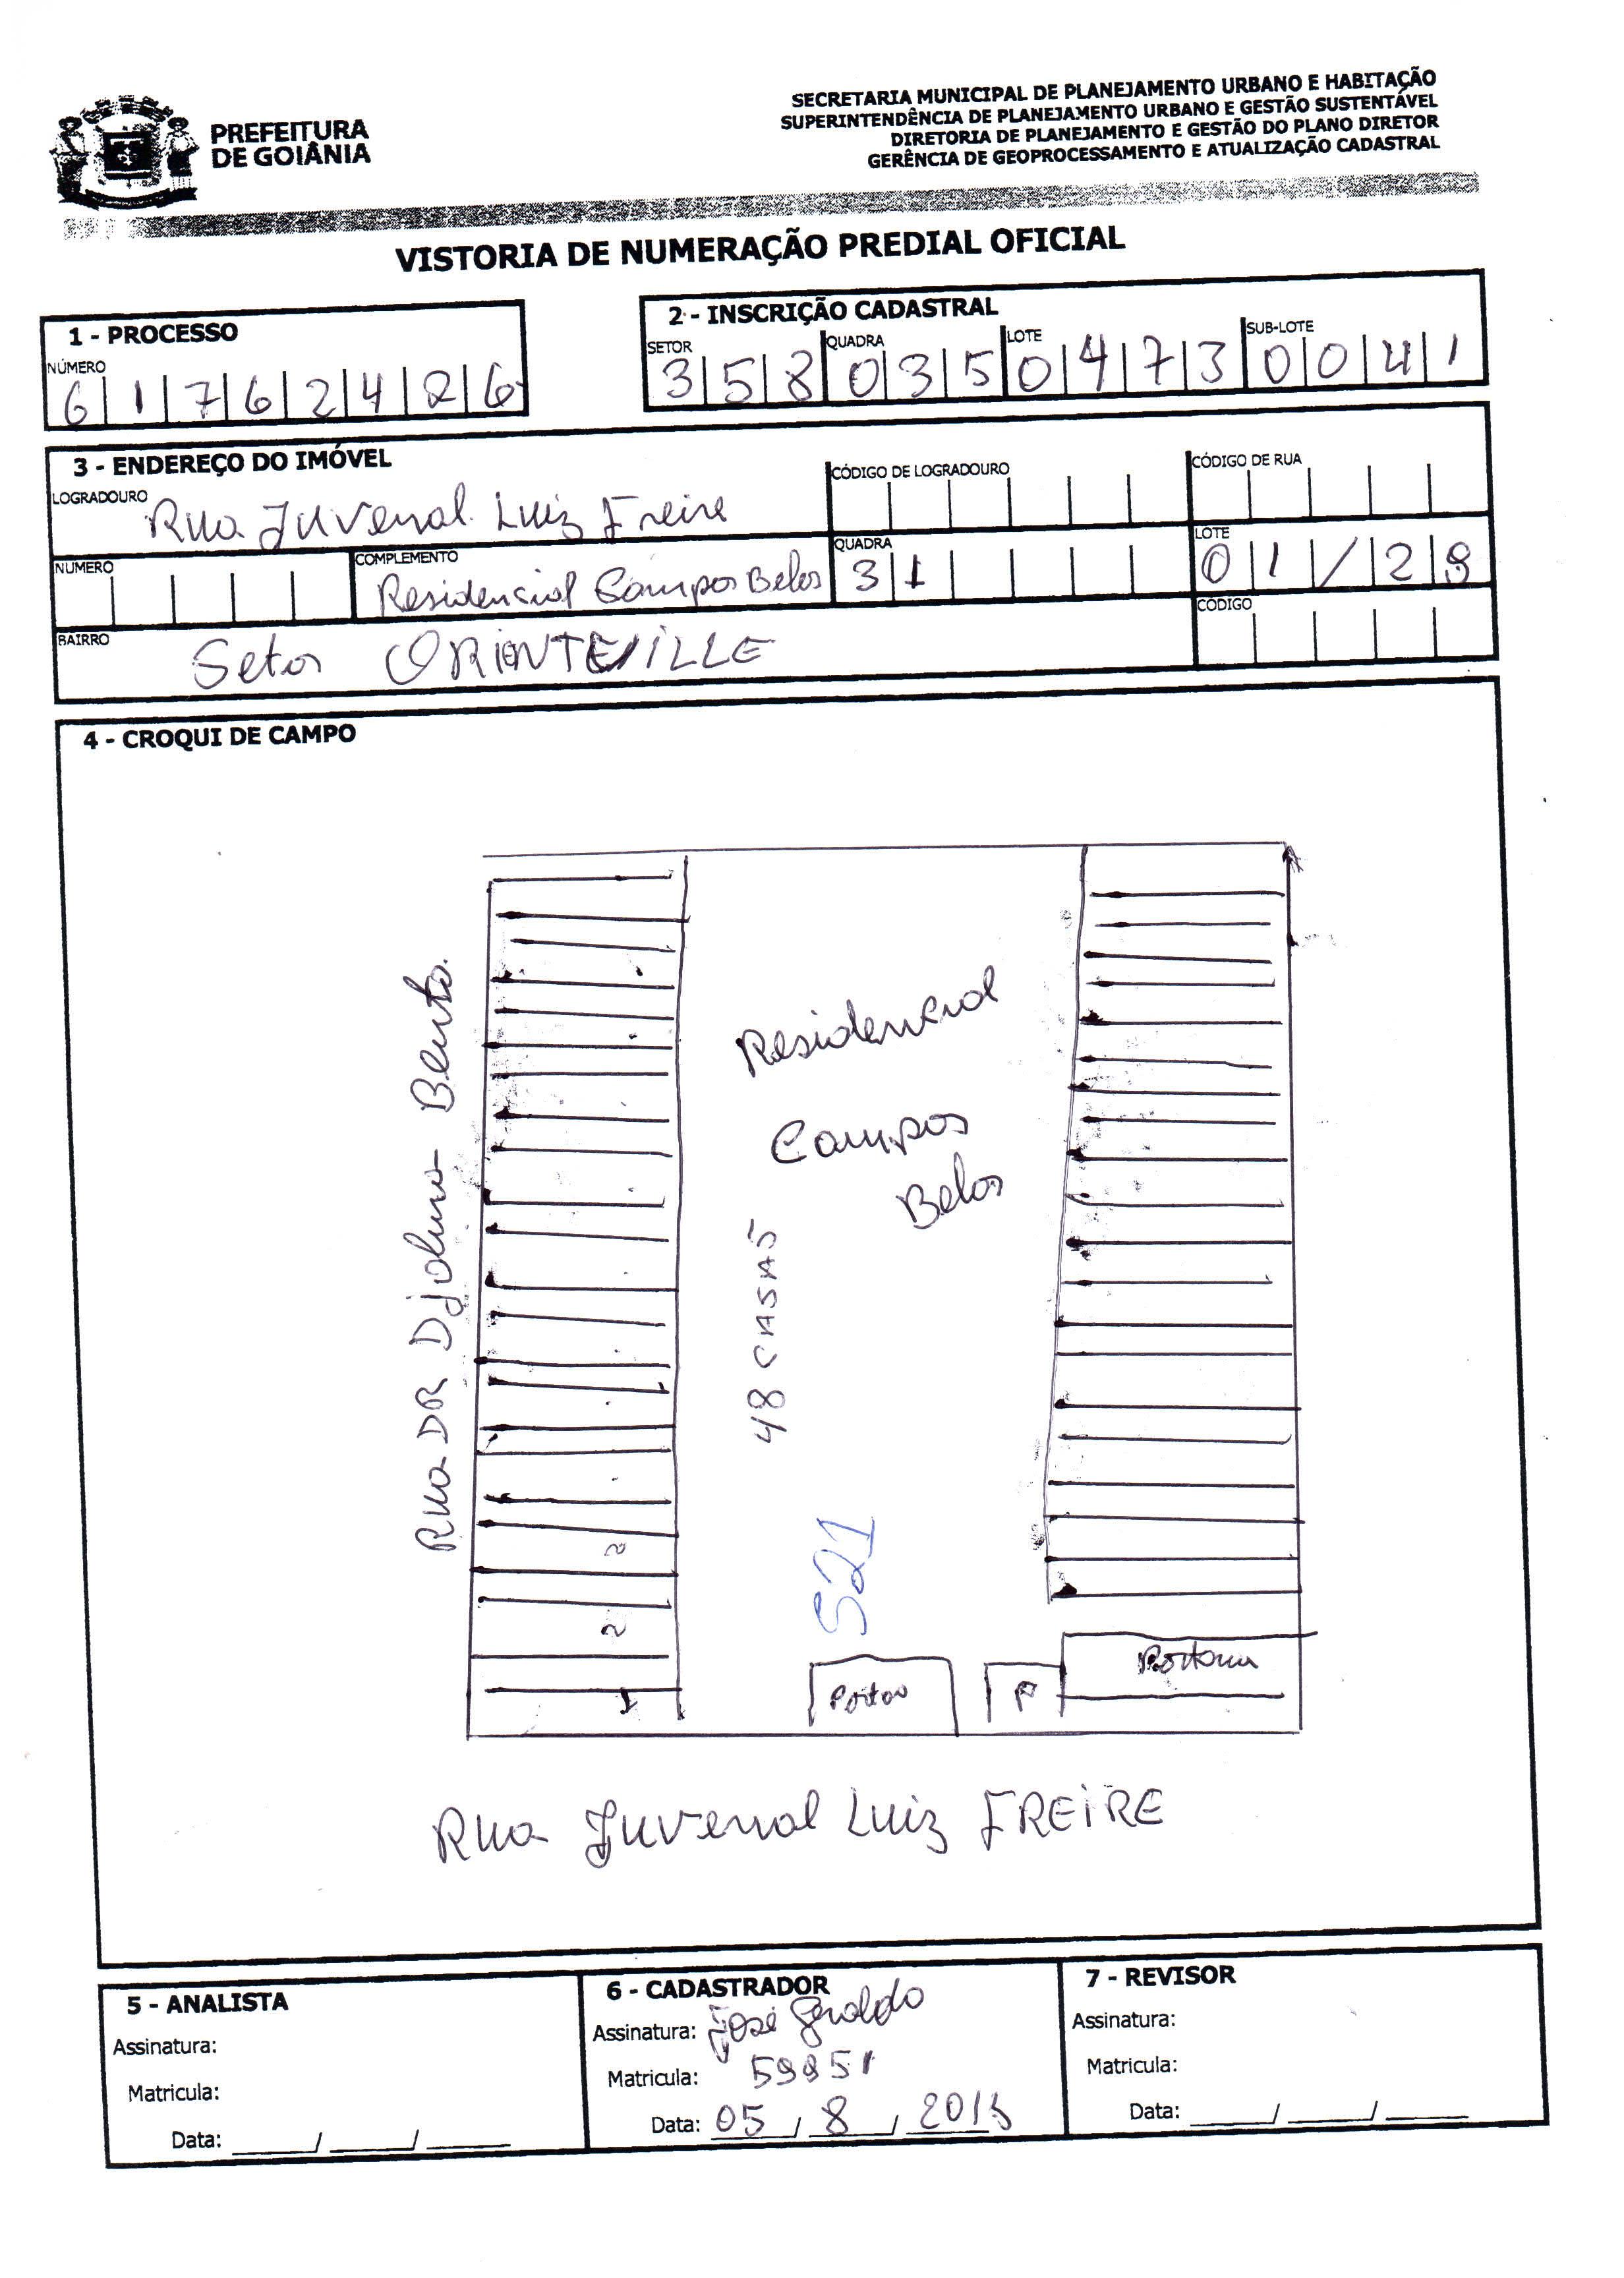 PREFEITURA
DE GOIÂNIA
SECRETARIA MUNICIPAL DE PLANEJAMENTO URBANO E HABITAÇÃO
SUPERINTENDÊNCIA DE PLANEJAMENTO URBANO E GESTÃO SUSTENTÁVEL
DIRETORIA DE PLANEJAMENTO E GESTÃO DO PLANO DIRETOR
GERÊNCIA DE GEOPROCESSAMENTO E ATUALIZAÇÃO CADASTRAL
VISTORIA DE NUMERAÇÃO PREDIAL OFICIAL
1 - PROCESSO
NÚMERO
6 1 7 6 2 4 2 6
2 - INSCRIÇÃO CADASTRAL
SETOR QUADRA LOTE SUB-LOTE
3 5 8 0 3 5 0 4 7 3 0 0 4 1
3 - ENDEREÇO DO IMÓVEL
LOGRADOURO Rua Juvenal Luiz Freire
CÓDIGO DE LOGRADOURO
CÓDIGO DE RUA
NUMERO
COMPLEMENTO
Residencial Campos Belos
QUADRA
3 1
LOTE
0 1 / 2 9
BAIRRO Setor ORIENTEVILLE
CÓDIGO
4 - CROQUI DE CAMPO
Rua DR Djalma Bento.
Residencial
Campos
Belos
48 CASAS
521
2
2
1
Portao
P
Portaria
Rua Juvenal Luiz FREIRE
5 - ANALISTA
Assinatura:
Matricula:
Data: ____/____/____
6 - CADASTRADOR
Assinatura: José Geraldo
Matricula: 59951
Data: 05 / 8 / 2015
7 - REVISOR
Assinatura:
Matricula:
Data: ____/____/____